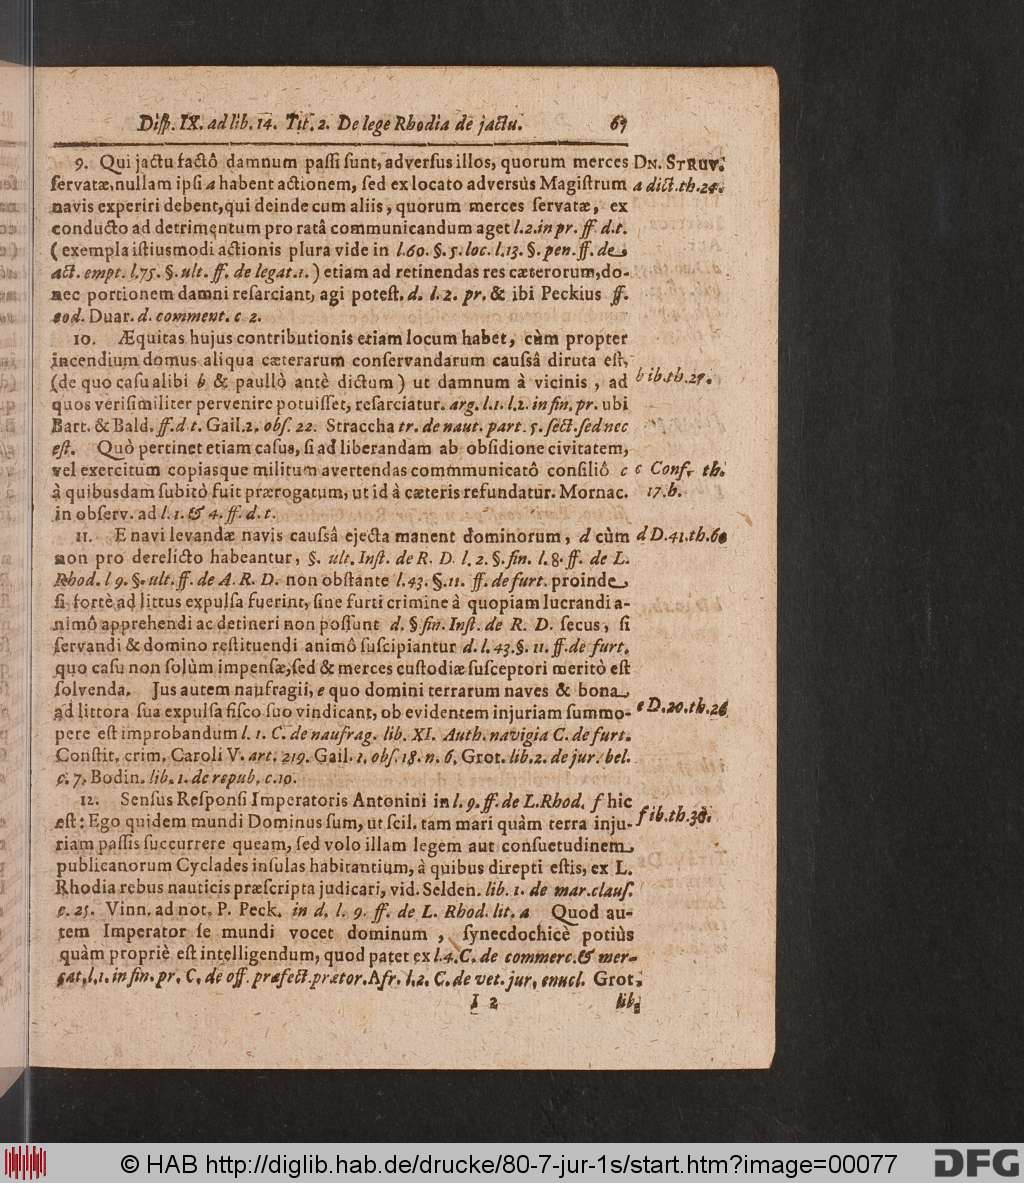 Disp. IX. ad lib. 14. Tit. 2. De lege Rhodia de jactu. 67
9. Qui jactu factô damnum passi sunt, adversus illos, quorum merces
DN. STRUV.
servatæ, nullam ipsi a habent actionem, sed ex locato adversùs Magistrum
a dict. th. 24.
navis experiri debent, qui deinde cum aliis, quorum merces servatæ, ex
conducto ad detrimentum pro ratâ communicandum aget l. 2. in pr. ff. d. t.
(exempla istiusmodi actionis plura vide in l. 60. §. 5. loc. l. 13. §. pen. ff. de
act. empt. l. 75. §. ult. ff. de legat. 1.) etiam ad retinendas res cæterorum, do-
nec portionem damni resarciant, agi potest. d. l. 2. pr. & ibi Peckius ff.
eod. Duar. d. comment. c 2.
10. Æquitas hujus contributionis etiam locum habet, cùm propter
incendium domus aliqua cæterarum conservandarum caussâ diruta est,
(de quo casu alibi b & paullò antè dictum) ut damnum à vicinis, ad
b ib. th. 27.
quos verisimiliter pervenire potuisset, resarciatur. arg. l. 1. l. 2. in fin. pr. ubi
Bart. & Bald. ff. d t. Gail. 2. obs. 22. Straccha tr. de naut. part. 5. sect. sed nec
est. Quò pertinet etiam casus, si ad liberandam ab obsidione civitatem,
vel exercitum copiasque militum avertendas commmunicatô consiliô c
c Conf. th.
à quibusdam subitò fuit prærogatum, ut id à cæteris refundatur. Mornac.
17. b.
in observ. ad l. 1. & 4. ff. d. t.
11. E navi levandæ navis caussâ ejecta manent dominorum, d cùm
d D. 41. th. 60
non pro derelicto habeantur, §. ult. Inst. de R. D. l. 2. §. fin. l. 8. ff. de L.
Rhod. l 9. §. ult. ff. de A. R. D. non obstante l. 43. §. 11. ff. de furt. proinde
si fortè ad littus expulsa fuerint, sine furti crimine à quopiam lucrandi a-
nimô apprehendi ac detineri non possunt d. § fin. Inst. de R. D. secus, si
servandi & domino restituendi animô suscipiantur d. l. 43. §. 11. ff. de furt.
quo casu non solùm impensæ, sed & merces custodiæ susceptori meritò est
solvenda. Jus autem naufragii, e quo domini terrarum naves & bona
ad littora sua expulsa fisco suo vindicant, ob evidentem injuriam summo-
e D. 20. th. 26
pere est improbandum l. 1. C. de naufrag. lib. XI. Auth. navigia C. de furt.
Constit. crim. Caroli V. art. 219. Gail. 1. obs. 18. n. 6. Grot. lib. 2. de jur. bel.
c. 7. Bodin. lib. 1. de repub. c. 10.
12. Sensus Responsi Imperatoris Antonini in l. 9. ff. de L. Rhod. f hic
est: Ego quidem mundi Dominus sum, ut scil. tam mari quàm terra inju-
f ib. th. 38.
riam passis succurrere queam, sed volo illam legem aut consuetudinem
publicanorum Cyclades insulas habitantium, à quibus direpti estis, ex L.
Rhodia rebus nauticis præscripta judicari, vid. Selden. lib. 1. de mar. claus.
c. 25. Vinn. ad not. P. Peck. in d. l. 9. ff. de L. Rhod. lit. a Quod au-
tem Imperator se mundi vocet dominum, synecdochicè potiùs
quàm propriè est intelligendum, quod patet ex l. 4. C. de commerc. & mer-
cat. l. 1. in fin. pr. C. de off. præfect. prætor. Afr. l. 2. C. de vet. jur. enucl. Grot.
I 2 lib.
© HAB http://diglib.hab.de/drucke/80-7-jur-1s/start.htm?image=00077
DFG